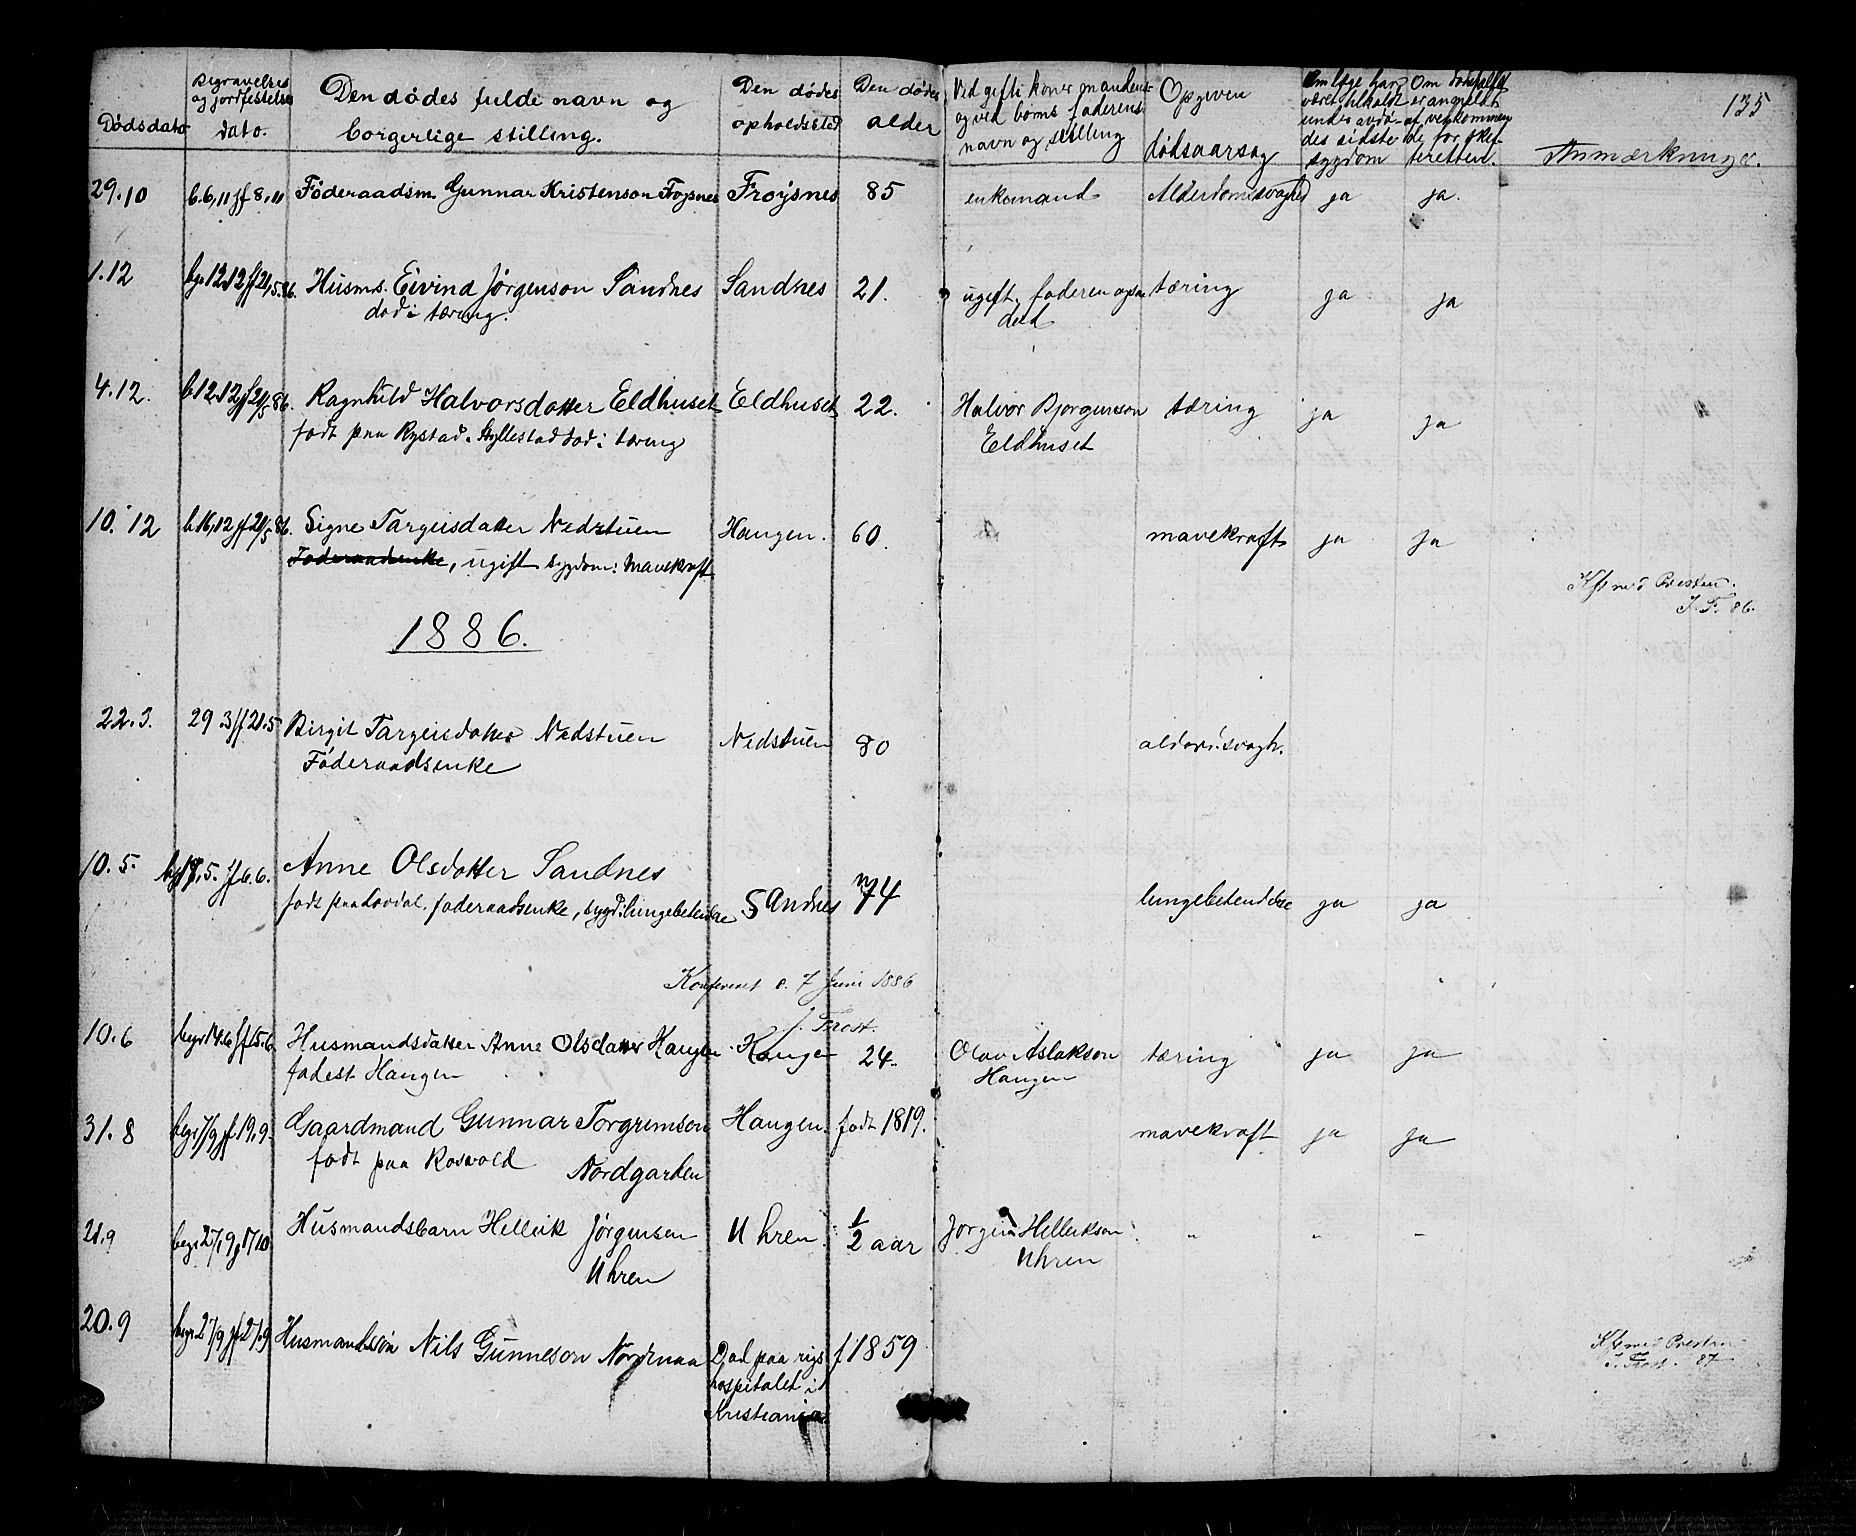 135
Dødsdato
Begravelses
og jordfestelses
dato.
Den dødes fulde navn og
borgerlige stilling.
Den dødes
opholdssted
Den dødes
alder
Ved gifte koner mandens
og ved børns faderens
navn og stilling
Opgiven
dødsaarsag
Om læge har
været tilkaldt
under avdø-
des sidste
sygdom
Om dødsfaldet
er anmeldt
af vedkommen
de for skif-
teretten.
Anmærkninger.
29.10 b.6,11 jf 8,11 Föderaadsm. Gunnar Kristenson Froysnes Froysnes 85 enkemand Alderdomssvaghed ja ja.
1.12 bg. 12.12 jf 21,5.86. Husms. Eivind Jörgenson Sandnes Sandnes 21. ugift. faderen ogsaa tæring ja ja
död i tæring. död
4.12. b 12.12 jf 21/5 86. Ragnhild Halvorsdatter Eldhuset Eldhuset 22. Halvor Bjorgumson tæring ja ja
født paa Rystad. Hyllestad död i tæring Eldhuset
10.12 b.16,12 jf 21/5 86. Signe Targeisdatter Nedstuen Haugen. 60. mavekræft ja ja
Föderaadsenke, ugift sygdom: Mavekræft
Kfr med Presten.
J. F. 86.
1886.
22.3. 29.3 jf 21.5 Birgit Targeisdatter Nedstuen Nedstuen 80 alderd.svagh.
Föderaadsenke
10.5. bg 17,5. jf 6.6. Anne Olsdatter Sandnes
født paa Lovdal, føderaadsenke, sygd. lungebetendelse Sandnes 74 lungebetendelse ja ja
Konfereret d. 7 Juni 1886
J. Frost.
10.6 begr 14.6 jf 15.6 Husmandsdatter Anne Olsdatter Haugen. Haugen 24. Olav Aslakson tæring ja ja
fødest Haugen Haugen
31.8 begr 7/9 jf. 19.9. Gaardmand Gunnar Torgrimson Haugen. født 1819. mavekræft ja ja
født paa Rosvold Nordgarden
21.9 begr 27/9 jf 17/10 Husmandsbarn Helleik Jörgensen Uhren. 1/2 aar Jorgen Helleikson " " "
Uhren Uhren
20.9 begr. 27/9 jf 27/9 Husmandssön Nils Gunneson Nordenaa Död paa rigs f 1859
hospitalet i
Kristiania
Kfr med Presten
J. Frost. 87